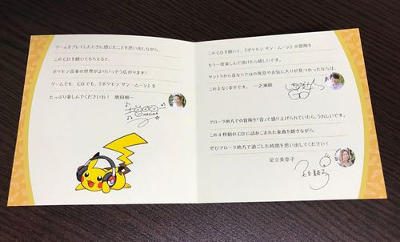 ゲームをプレイしたときに感じたことを思い出しながら、
このCDを聴いてもらえると、
ポケモン音楽の世界がより いっそう広がります！
ゲームでも、CDでも、『ポケモン サン・ムーン』を
たっぷり楽しんでくださいね！ 増田順一
このCDを聴いて、『ポケモン サン・ムーン』の冒険を
もう一度楽しんで頂けたら嬉しいです。
サントラから自分だけの発見やお気に入りが見つかったならば、
このよなく幸せです。 一之瀬剛
アローラ地方での冒険を「音」で盛り上げられていたら、うれしいです。
この4枚組のCDに詰めこまれた楽曲を聴きながら
ぜひアローラ地方で過ごした時間を思い出してください！
足立美奈子